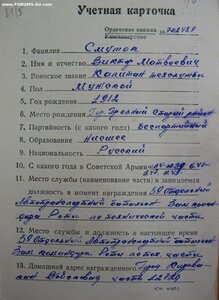 WWW.FORUMS-SU.COM
Учетная карточка
Орденская книжка № 702438
Удостоверение
1. Фамилия Смуток
2. Имя и отчество Виктор Матвеевич
3. Воинское звание Капитан техслужбы
4. Пол Мужской
5. Год рождения 1912
6. Место рождения Гор. Грозный Старый район
7. Партийность (с какого года) беспартийный
8. Образование Низшее
9. Национальность Русский
10. С какого года в Советской Армии
11. Место службы (наименование части) и занимаемая
должность в момент награждения 50 Отдельный
Автотранспортный батальон Зам. коман
дира Роты по технической части.
12. Место службы и должность в настоящее время
50 Отдельный Автотранспортный батальон
Зам командира Роты по тех. части.
13. Домашний адрес награжденного
Войсковая часть
(См. н/об.)